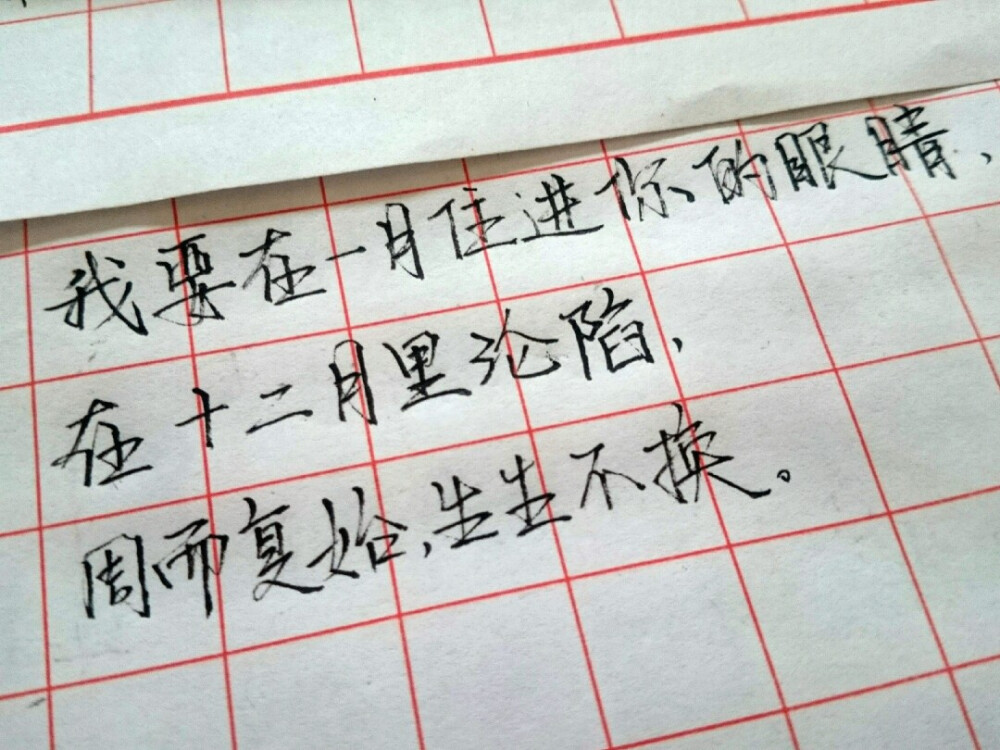 我要在一月住进你的眼睛、
在十二月里沦陷、
周而复始，生生不换。